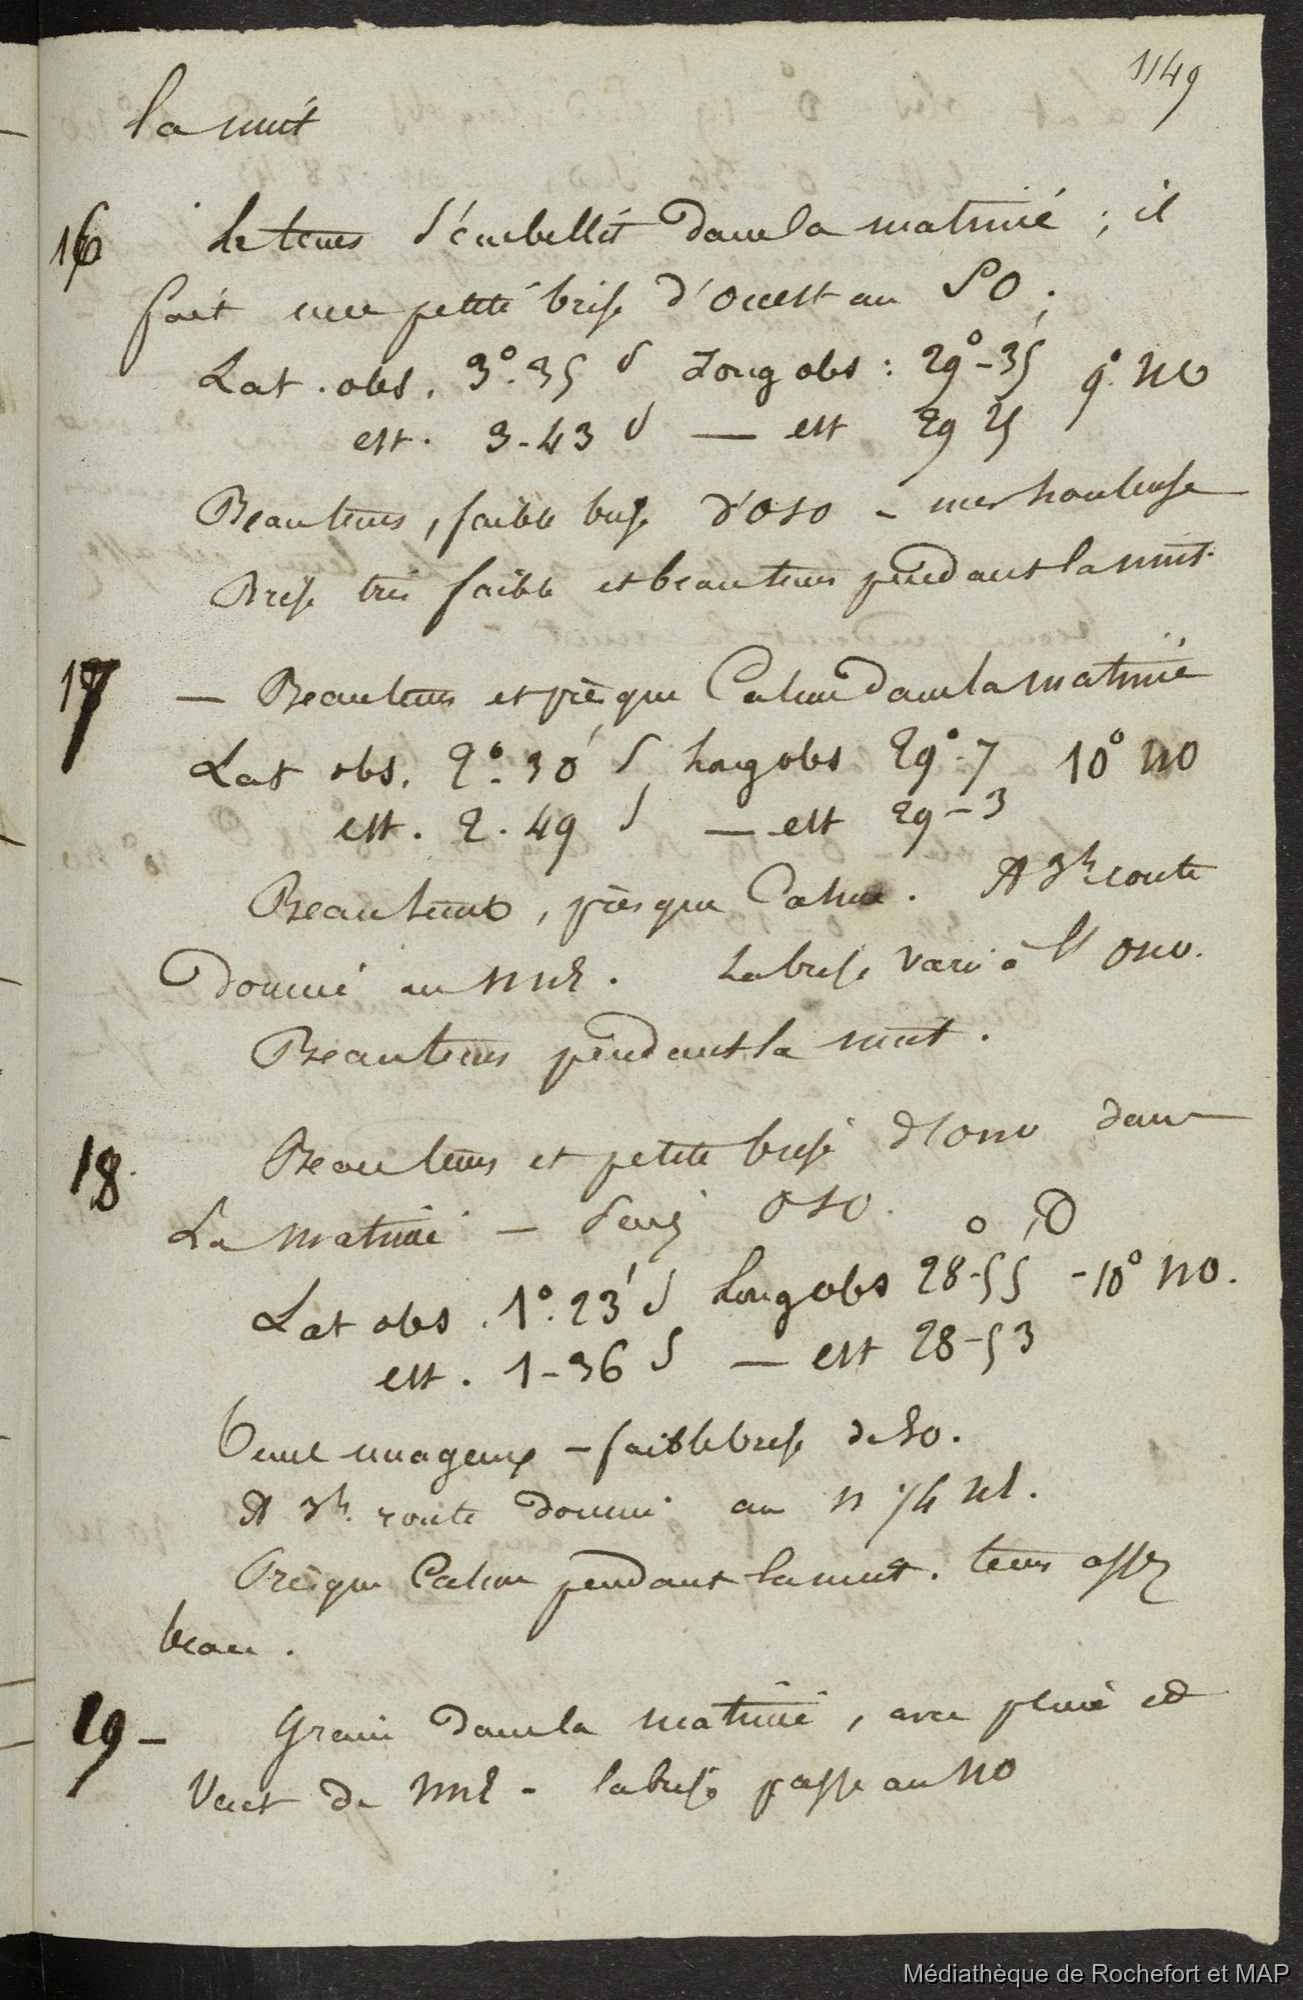 1149
la nuit
16 Le tems s'embellit dans la matinée ; il
fait une petite brise d'ouest au SO.
Lat. obs. 3° 35 S Long obs : 29°-35' 9° NO
est. 3-43 S — est 29 25
Beau tems, faible brise d'OSO - mer houleuse
Brise très faible et beau tems pendant la nuit.
17 — Beau tems et prèsque Calme dans la matinée
Lat obs. 2°. 30' S Long obs 29°-7 10° NO
est. 2. 49 S — est 29-3
Beau tems, prèsque Calme. A 3h route
Donné au NNE. La brise varie à l'ONO.
Beau tems pendant la nuit.
18. Beau tems et petite brise d'ONO dans
La matinée - OSO.
Lat obs. 1°. 23' S Long obs 28°-55' D -10° NO.
est. 1-36 S — est 28-53
Tems nuageux - faible brise de SO.
A 3h. route donné au N 1/4 NE.
Prèsque Calme pendant la nuit. tems assez
beau.
19 - Grain dans la matinée, avec pluie et
Vent de NNE - la brise passe au NO
Médiathèque de Rochefort et MAP